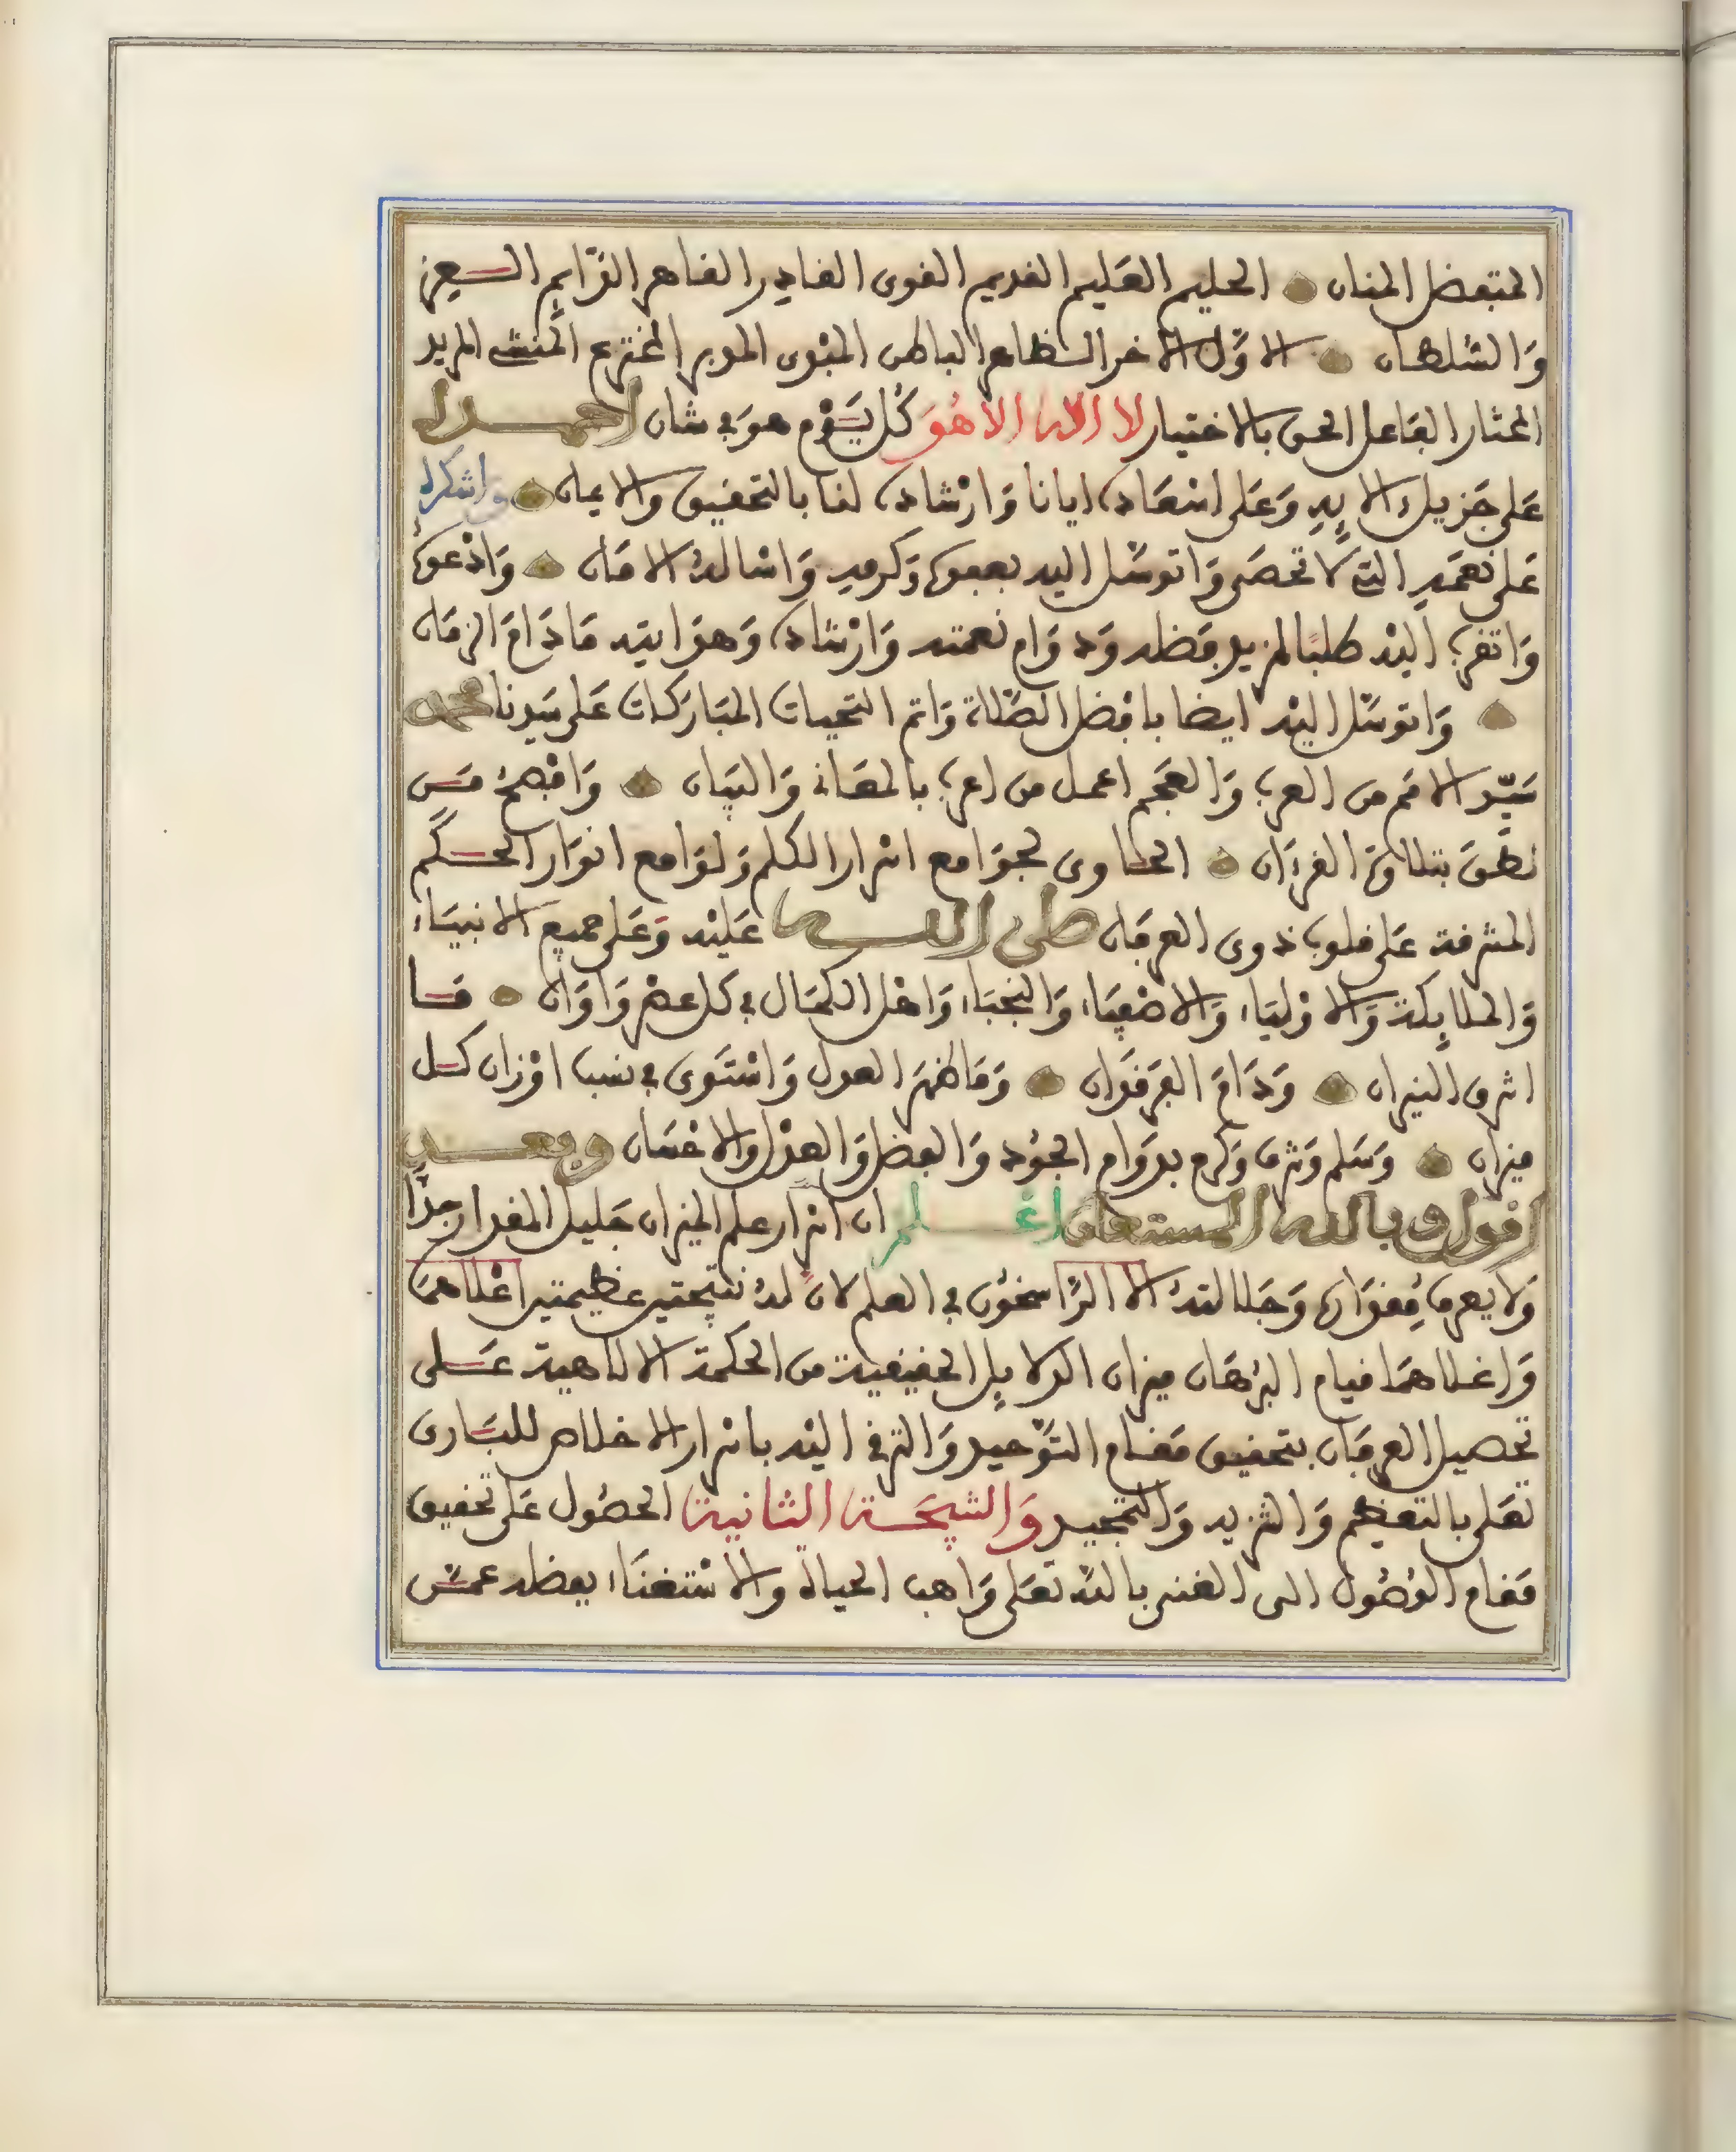 المتفضل المنان الحليم العليم القديم القوى القادر القاهر الدَّايم العزيز
وَالسُّلطان الاوَّل الاخر الظاهر الباطن المبْدى المدبر المخترع المنشئ المريد
المختار الفَاعل الحق بالاختيار لا اله الا هُوَ كُل يَوْم هوَ في شان احمده
عَلى جَزيل ءالايِهِ وَعَلى اسْعَاده ايانا وَارْشاده لنا بالتحقيق والايمان واشكره
عَلى نعَمِهِ التي لا تحصَى وَاتوسَّل اليه بعفوه وَكرمِهِ وَاسْالهُ الامَان وَادْعوهُ
وَاتقرب اليْه طلبًا لمزيد فضله وَدوَام نعمته وَارْشاده وَهدَايته مَا دَامَ الزمَان
وَاتوسَّل اليْه ايضا بافضل الصَّلاة وَاتم التحيات المبَاركات عَلى سَيدنا محمد
سَيّد الامَم من العرب وَالعَجَم اكمل من اعرب بالمعَانى وَالبيَان وَافْهمُ مَن
نطَقَ بتلاوة القرءَان الحاوى لجوَامع اسْرار الكلم وَلوَامع انوَار الحكَم
المشرفة عَلى قلوب ذوى العرفَان صلى الله عَليْه وَعَلى جميع الانبيَاء
وَالملايكة وَالاوْليَاء وَالاصْفيَاء وَالنجبَاء وَاهْل الكمَال في كل عصْر وَاوَان مَا
اشرق النيران وَدَامَ الفرقدَان وَمَا ظهَرَ العدل وَاسْتَوى في نسب اوْزان كل
ميزان وَسَلم وَشرف وَكرم بدوَام الجُود وَالفضل وَالعدْل وَالاحْسَان وبعد
اقول وبالله المستعان اعْلم ان اسْرار علم الميزان جَليل المقدار جدًّا
وَلا يعرف مِقدَاره وَجَلالتهُ الا الرَّاسخُون في العلم لانَّ لهُ نتيجتين عَظيمتين اعْلاهمَا
وَاغلاهمَا قيام البُرْهَان ميزان الدلايل الحقيقية من الحكمة الالاهية عَلى
تحصيل العرفَان بتحقيق مقَام التَّوْحيد وَالترقى اليْه باسْرار الاخلاص للبَارى
تعَلى بالتعظيم وَالتنزيه وَالتمجيد وَالنتيجَة الثانية الحصُول عَلى تحقيق
مَقام الوُصُول الى الغنى باللهِ تعَلى وَاهب الحياة والاسْتغنَاء بفضله عمَّن